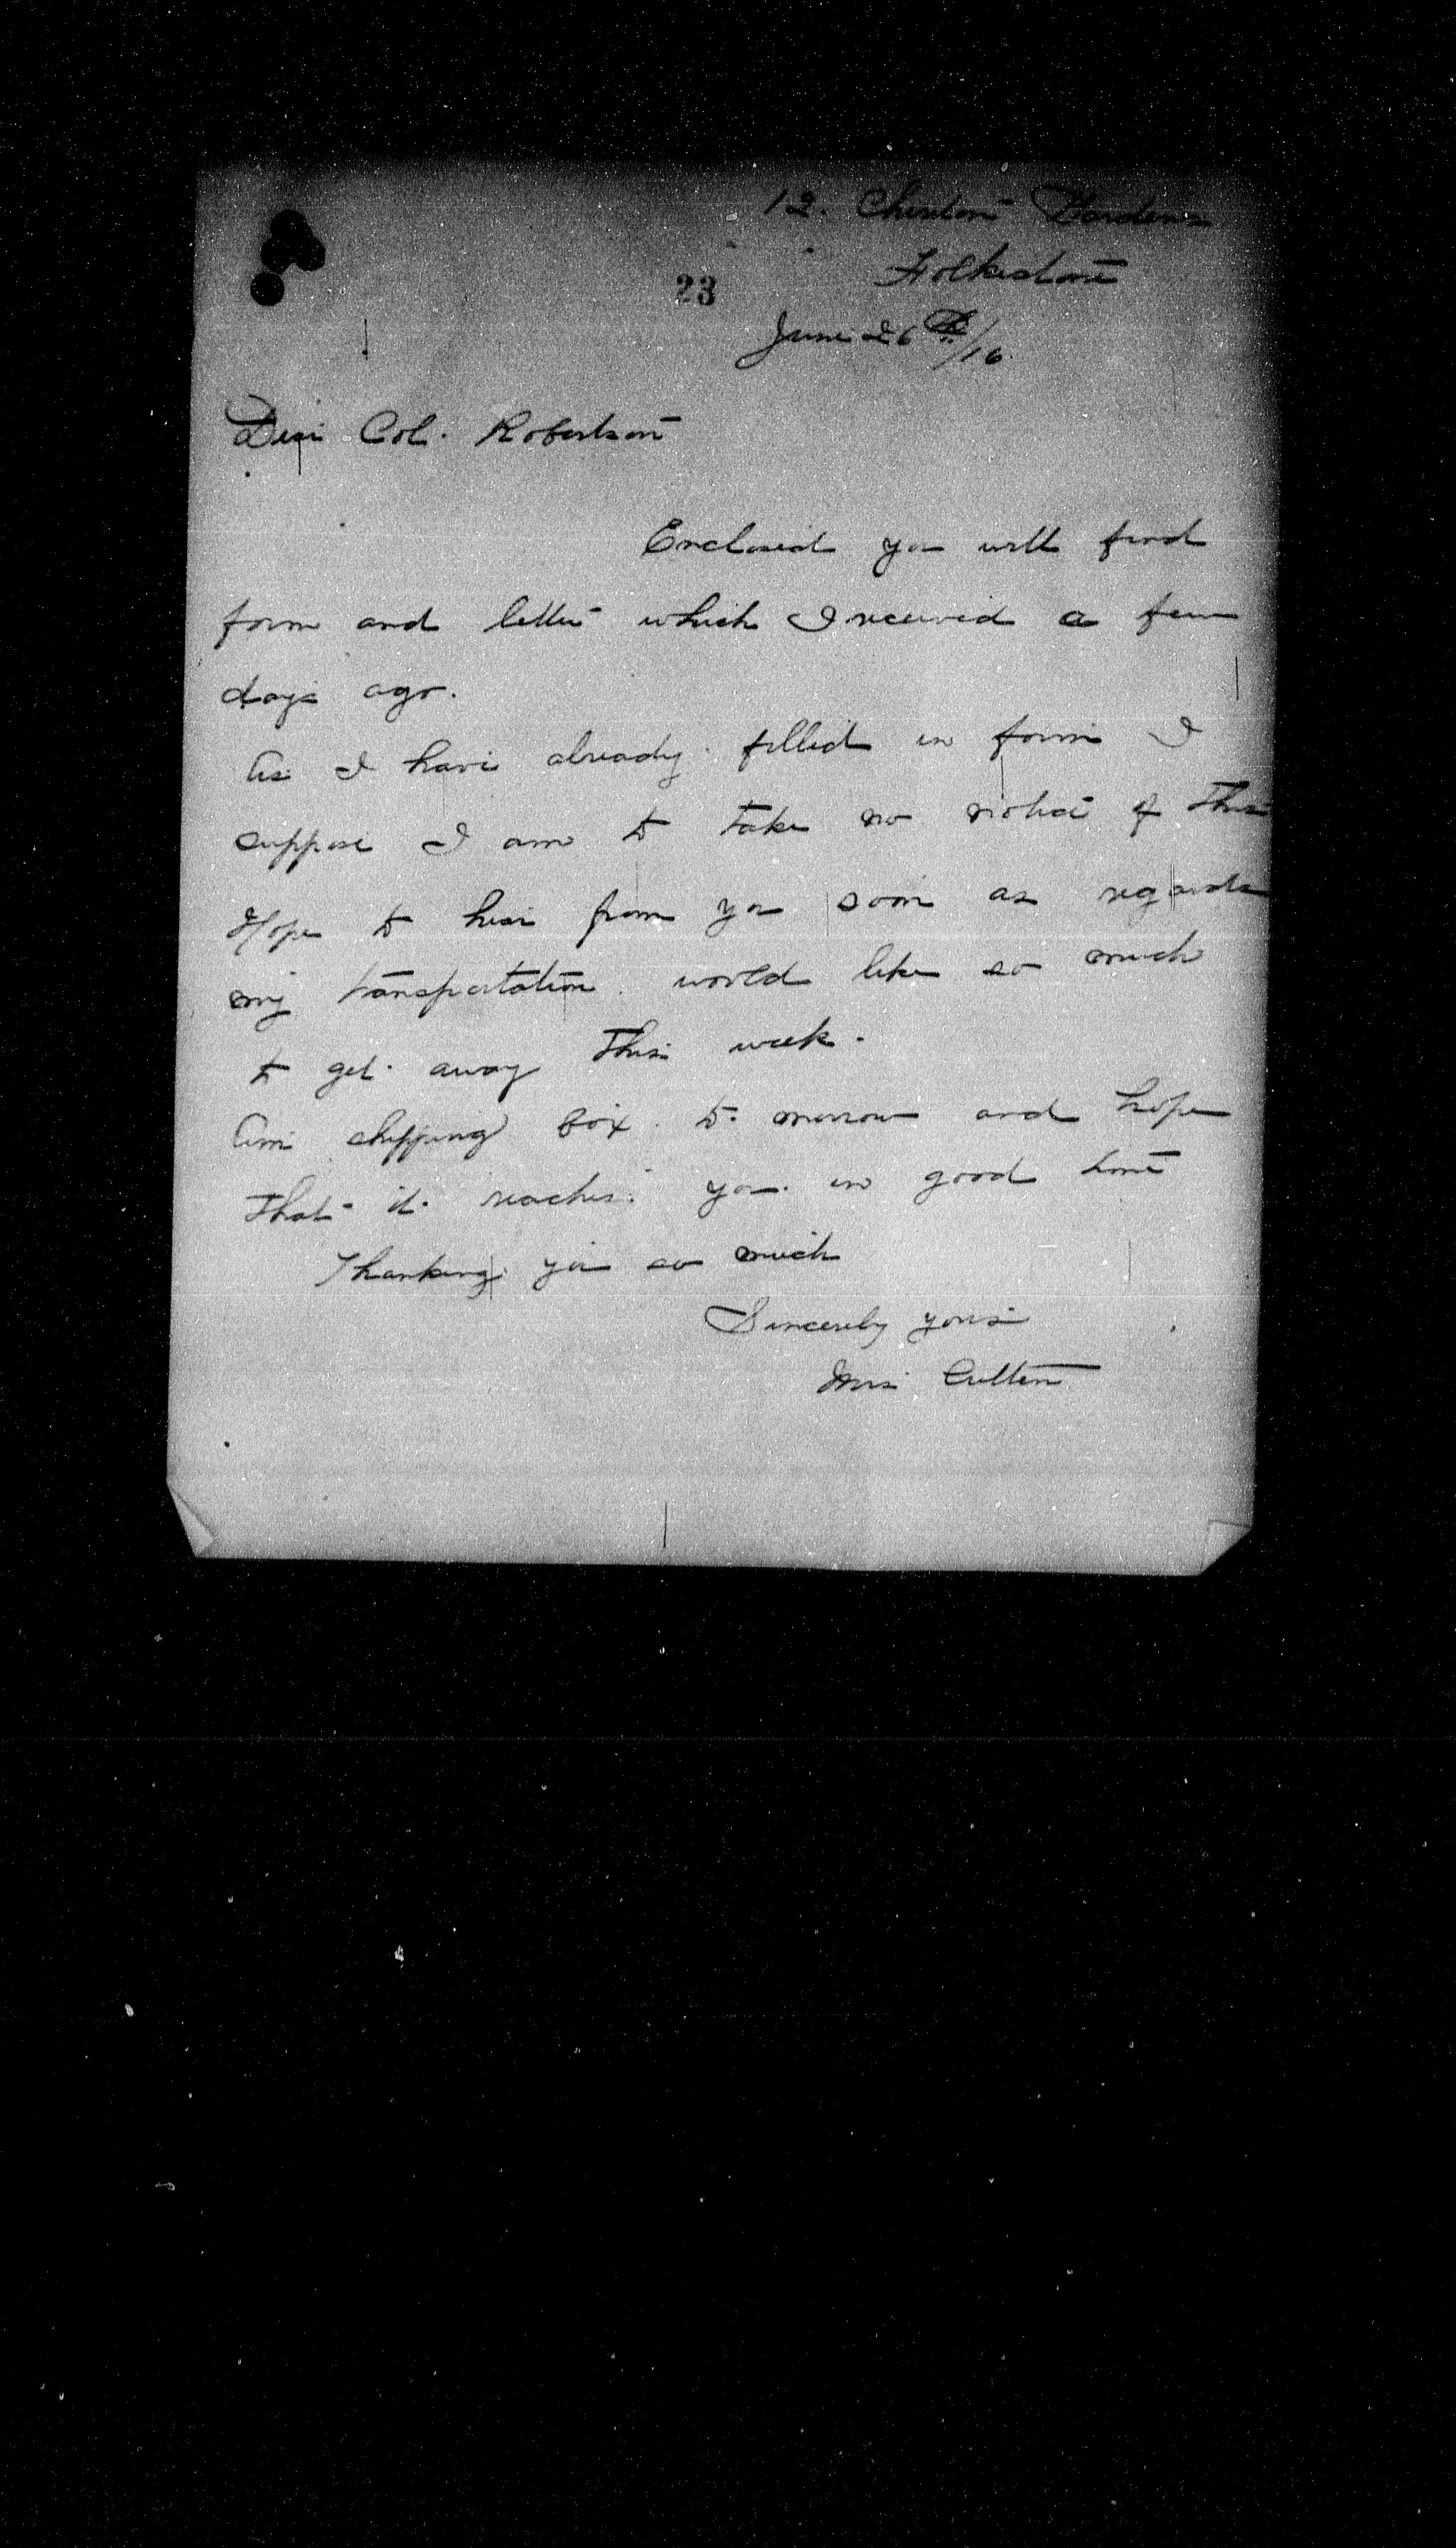 12. Cheriton Gardens
Folkestone
23
June 26th/16
Dear Col. Robertson
Enclosed you will find
form and letter which I received a few
days ago.
As I have already filled in form I
suppose I am to take no notice of this
Hope to hear from you soon as regards
my transportation. would like so much
to get away this week.
Am shipping box to-morrow and hope
that it reaches you in good time
Thanking you so much
Sincerely yours
Mrs